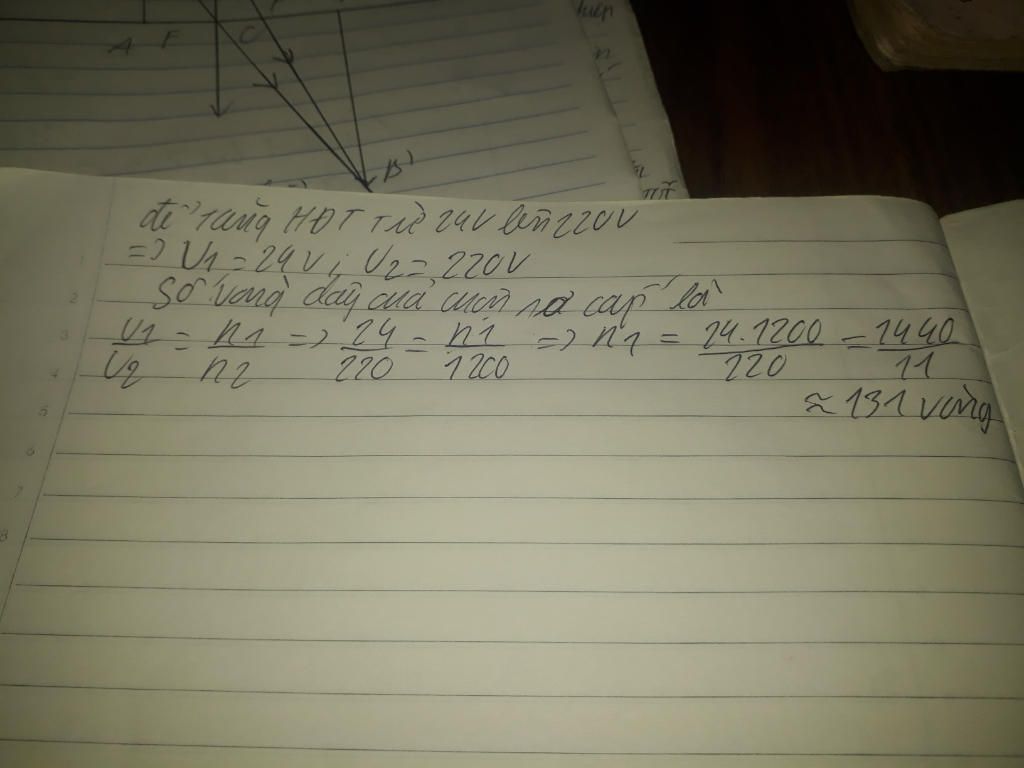 A F C
B'
để tăng HĐT từ 24V lên 220V
=> U1 = 24V ; U2 = 220V
Số vòng dây của cuộn sơ cấp là
U1/U2 = n1/n2 => 24/220 = n1/1200 => n1 = 24.1200/220 = 1440/11
≈ 131 vòng
1
2
3
4
5
6
7
8